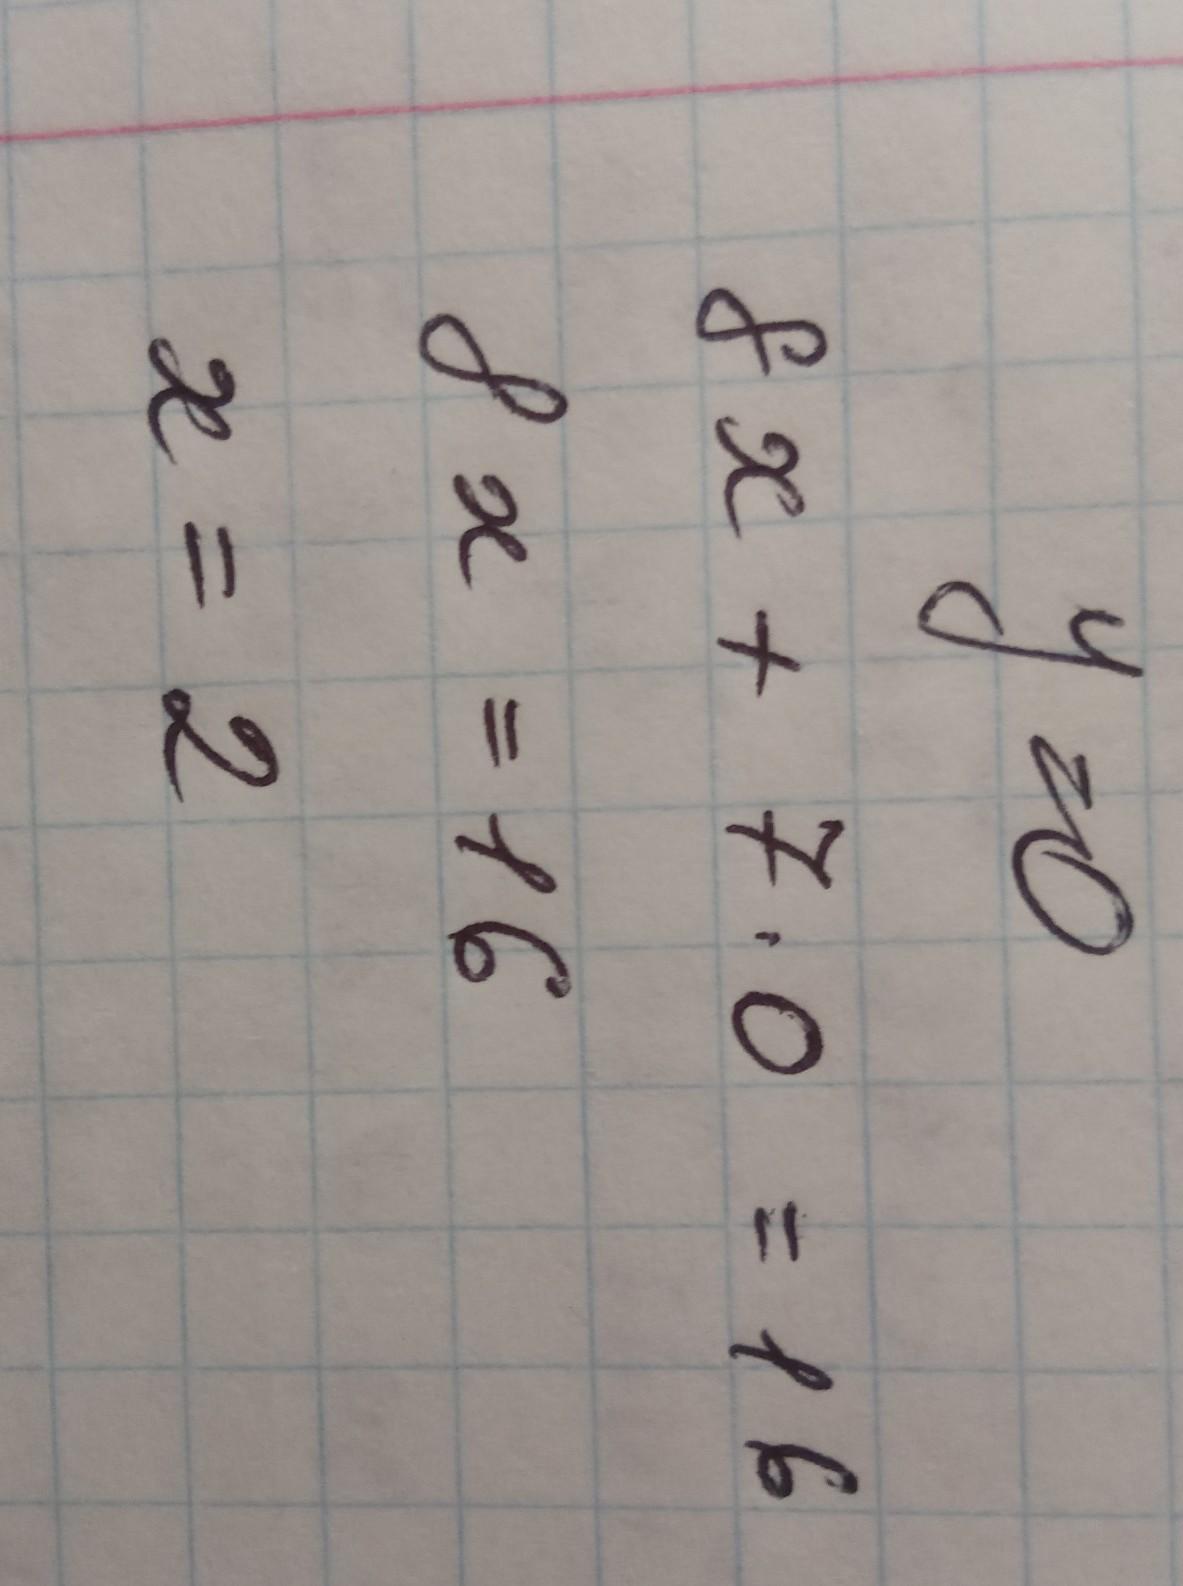 y=0
8x + 7·0 = 16
8x = 16
x = 2